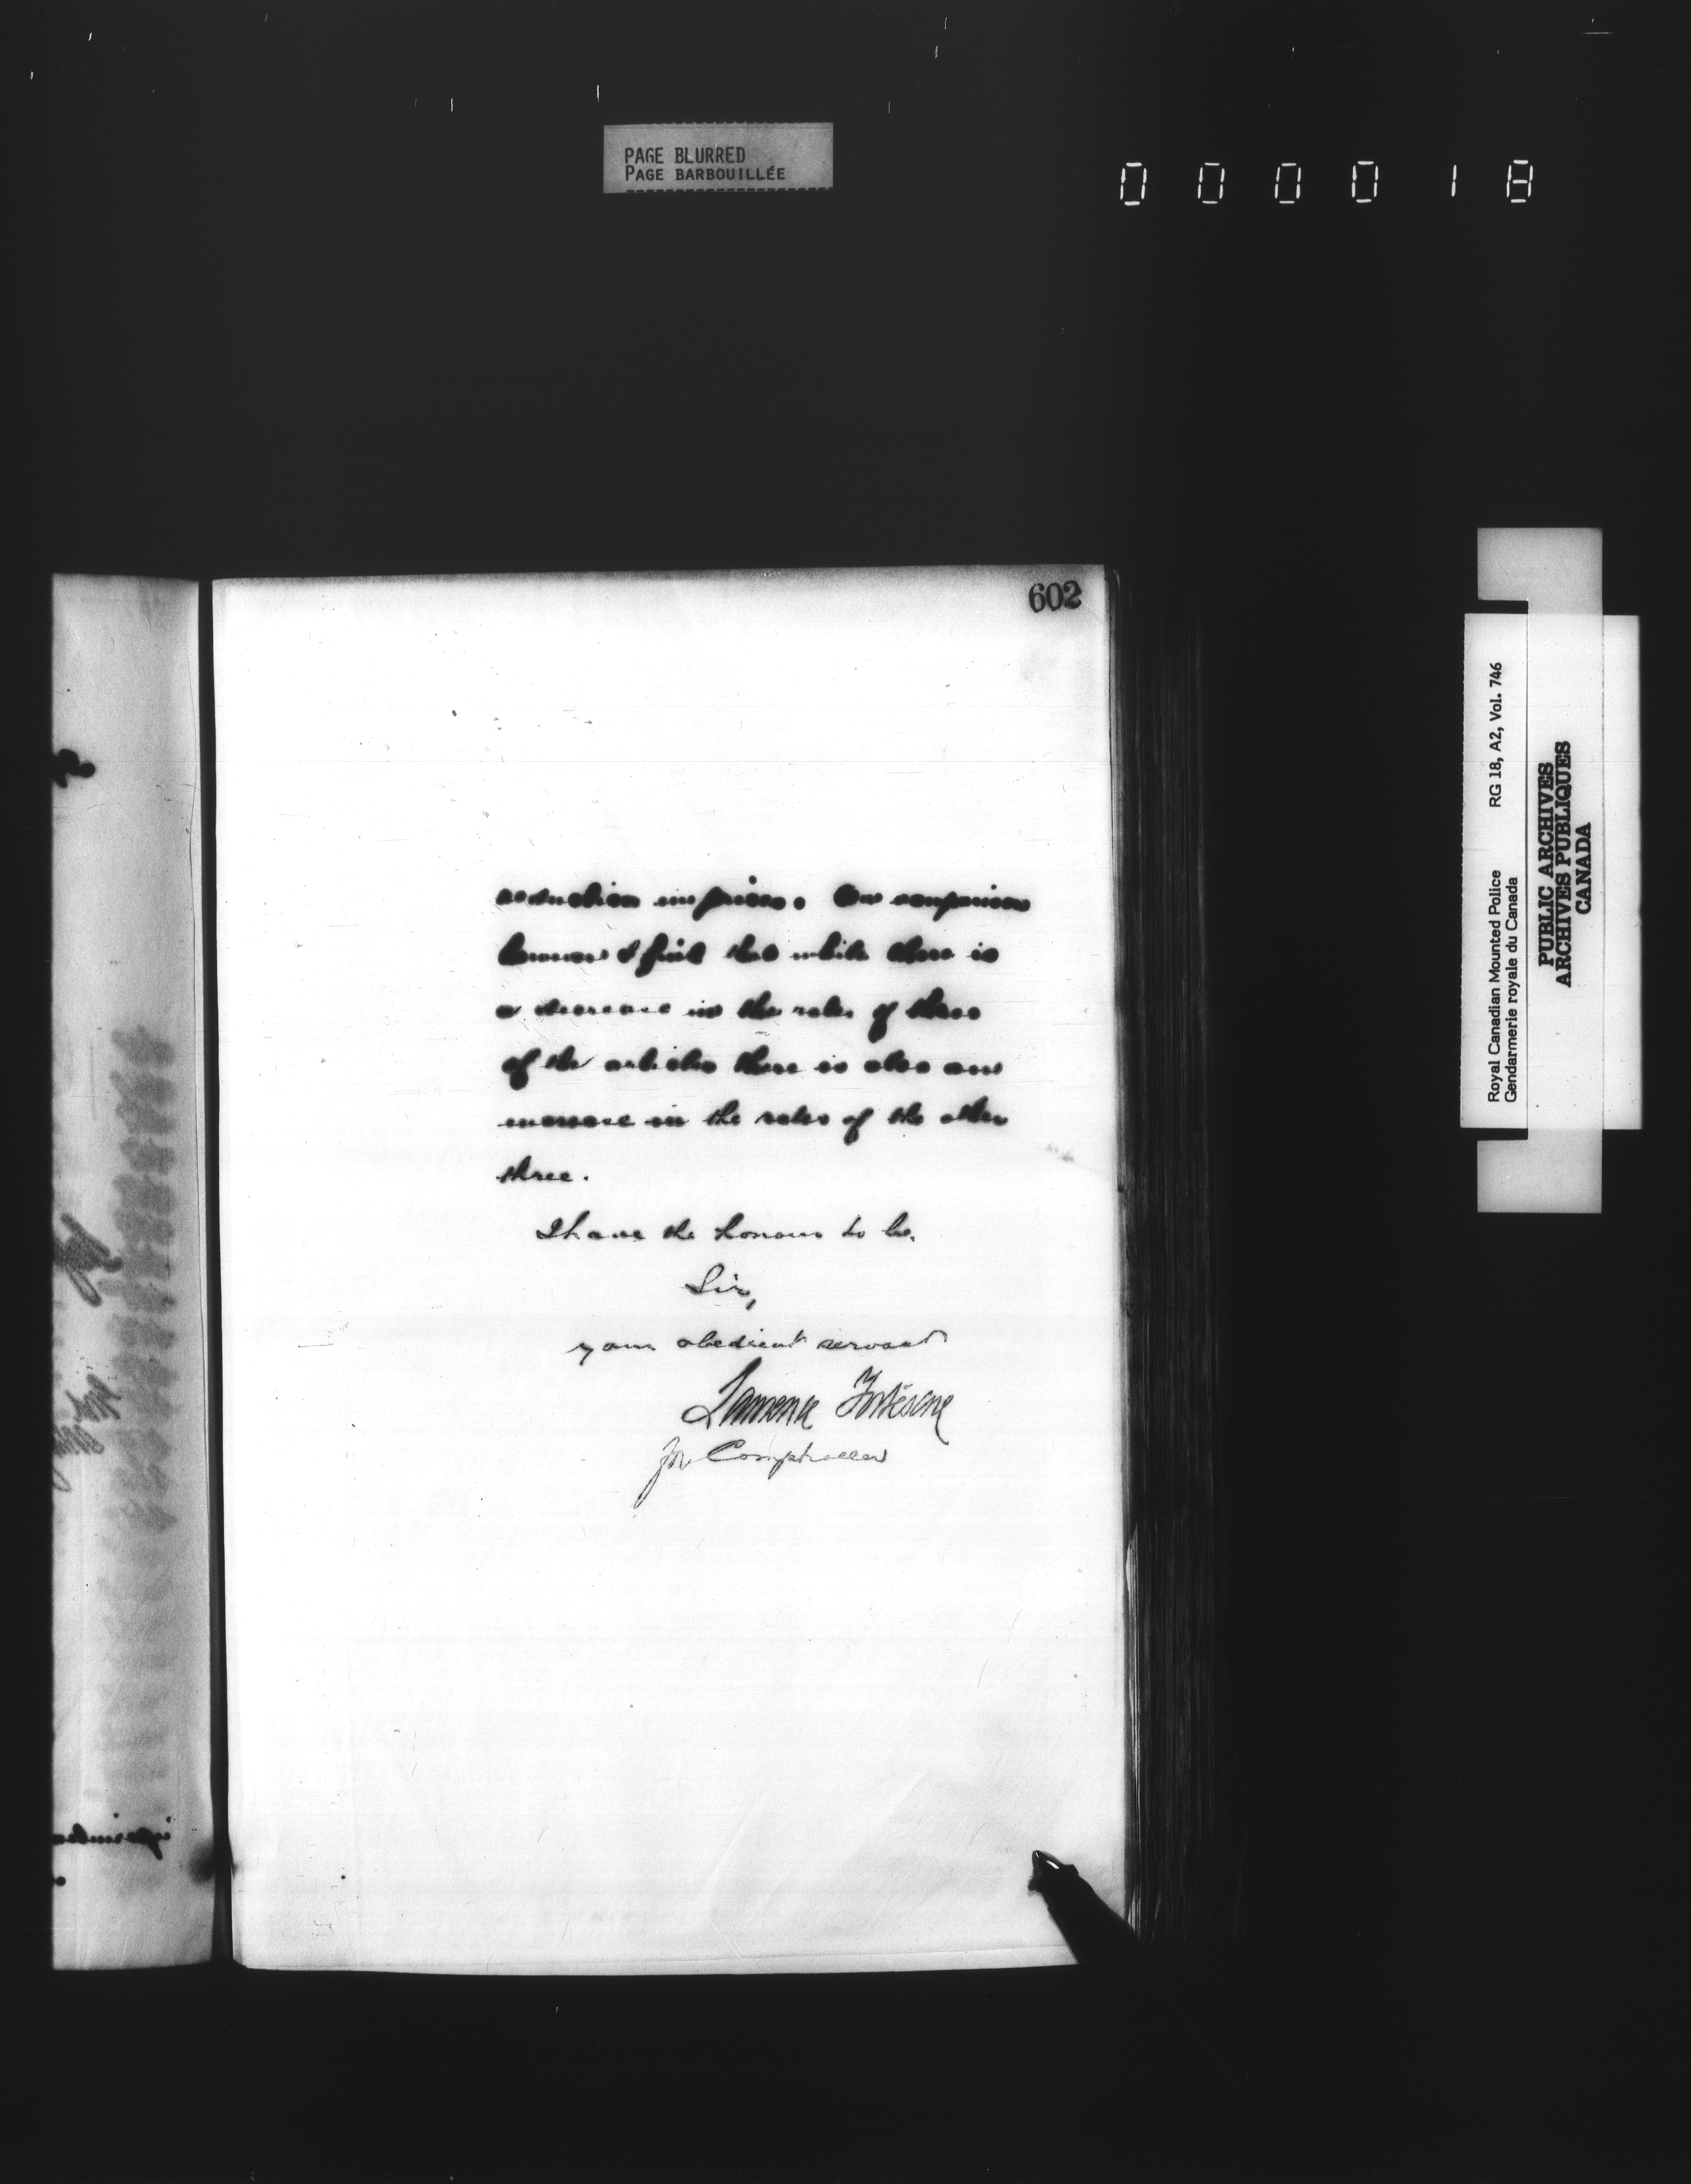 PAGE BLURRED
PAGE BARBOUILLÉE
000018
602
reduction in prices. On comparison
however I find that while there is
a decrease in the rates of three
of the articles there is also an
increase in the rates of the other
three.
I have the honour to be.
Sir,
your obedient servant
Lawrence Fortescue
for Comptroller
Royal Canadian Mounted Police RG 18, A2, Vol. 746
Gendarmerie royale du Canada
PUBLIC ARCHIVES
ARCHIVES PUBLIQUES
CANADA